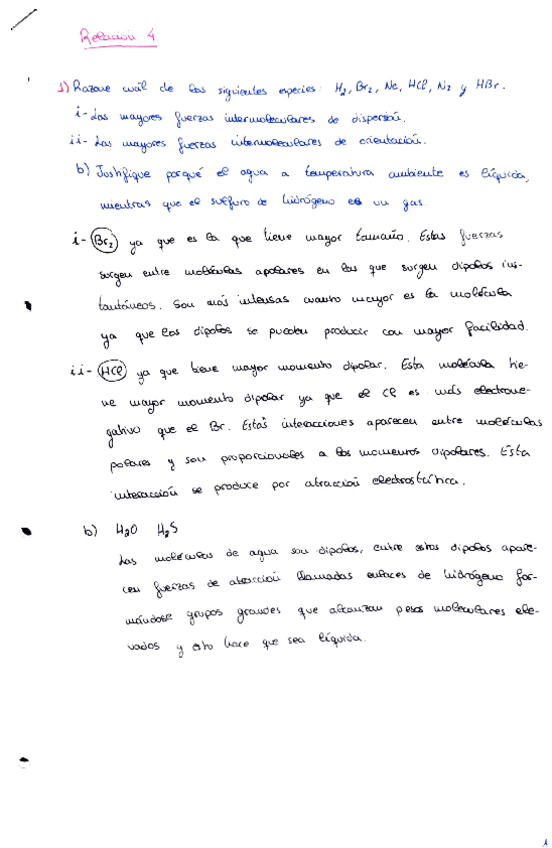 Relación 4
1) Razone cuál de las siguientes especies: H2, Br2, Ne, HCl, N2 y HBr.
i- Las mayores fuerzas intermoleculares de dispersión.
ii- Las mayores fuerzas intermoleculares de orientación.
b) Justifique porqué el agua a temperatura ambiente es líquida,
mientras que el sulfuro de hidrógeno es un gas.
i- Br2 ya que es la que tiene mayor tamaño. Estas fuerzas
surgen entre moléculas apolares en las que surgen dipolos ins-
tantáneos. Son más intensas cuanto mayor es la molécula
ya que los dipolos se pueden producir con mayor facilidad.
ii- HCl ya que tiene mayor momento dipolar. Esta molécula tie-
ne mayor momento dipolar ya que el Cl es más electrone-
gativo que el Br. Estas interacciones aparecen entre moléculas
polares y son proporcionales a los momentos dipolares. Esta
interacción se produce por atracción electrostática.
b) H2O H2S
Las moléculas de agua son dipolos, entre estos dipolos apare-
cen fuerzas de atracción llamadas enlaces de hidrógeno for-
mándose grupos grandes que alcanzan pesos moleculares ele-
vados y esto hace que sea líquida.